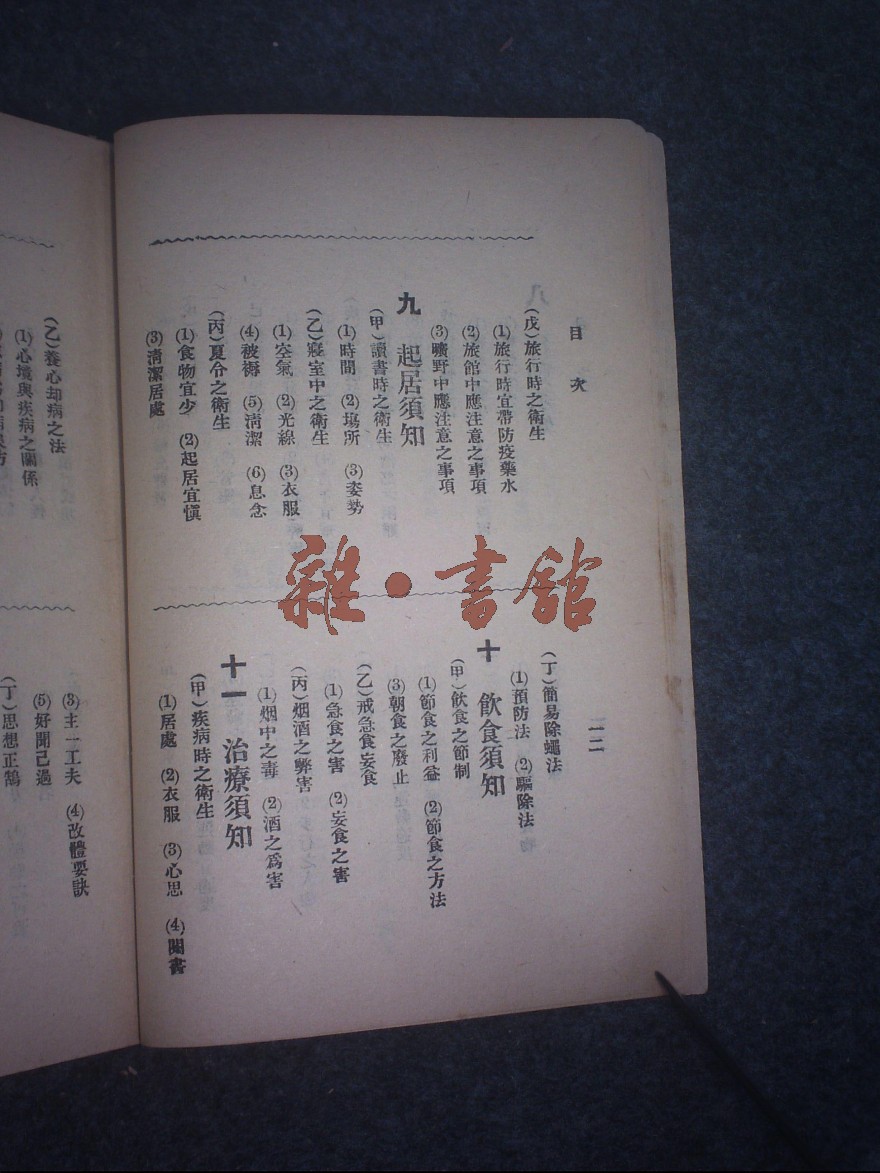 目次
(戊)旅行時之衛生
(1)旅行時宜帶防疫藥水
(2)旅館中應注意之事項
(3)曠野中應注意之事項
九 起居須知
(甲)讀書時之衛生
(1)時間 (2)場所 (3)姿勢
(乙)寢室中之衛生
(1)空氣 (2)光線 (3)衣服
(4)被褥 (5)清潔 (6)息念
(丙)夏令之衛生
(1)食物宜少 (2)起居宜慎
(3)清潔居處
二
(丁)簡易除蠅法
(1)預防法 (2)驅除法
十 飲食須知
(甲)飲食之節制
(1)節食之利益 (2)節食之方法
(3)朝食之廢止
(乙)戒急食妄食
(1)急食之害 (2)妄食之害
(丙)烟酒之弊害
(1)烟中之毒 (2)酒之爲害
十一 治療須知
(甲)疾病時之衛生
(1)居處 (2)衣服 (3)心思 (4)閱書
(乙)養心却病之法
(1)心境與疾病之關係
(3)主一工夫 (4)改體要訣
(5)好聞己過
(丁)思想正鵠
雜·書館